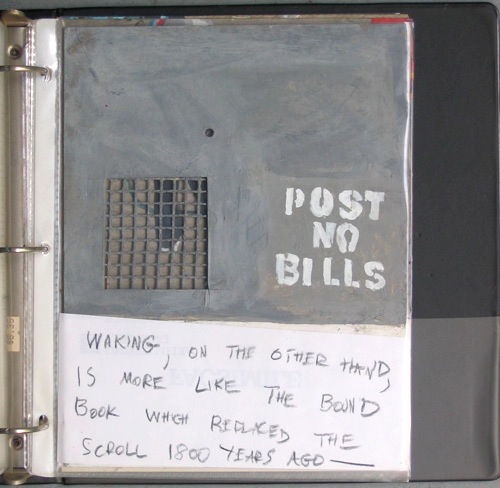 POST
NO
BILLS
WAKING, ON THE OTHER HAND,
IS MORE LIKE THE BOUND
BOOK WHICH REPLACED THE
SCROLL 1800 YEARS AGO —